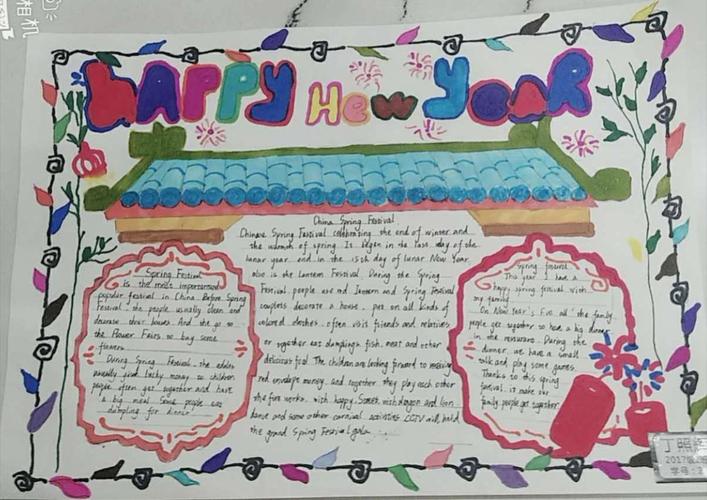 HAPPY New YeaR
China Spring Festival
Chinese Spring Festival celebrating the end of winter and
the warmth of spring. It began in the last day of the
lunar year, and in the 15th day of lunar New Year,
also is the Lantern Festival During the Spring
Festival, people use red lantern and Spring Festival
couplets decorate a house, put on all kinds of
colored clothes, often visit friends and relatives
or together eat dumplings, fish, meat and other
delicious food. The children are looking forward to receiving
red envelope money, and together they play each other
the fire works, with happy. Street with dragon and lion
dance and some other carnival activities CCTV will held
the grand Spring Festival gala.
Spring Festival
is the most
popular festival in China Before Spring
Festival, the people usually clean and
decorate their houses. And the go to
the Flower Fairs to buy some
flowers.
During Spring Festival, the
usually give lucky money to children
people often get together and have
a big meal. Some people
dumpling for dinner
Spring
This year I have a
happy spring festival with
my family
On New Year's Eve all the family
people get together to have a big dinner
in the restaurant. During the
dinner, we have a small
talk and play some games.
Thanks to this spring
it make our
family people get together
相机
2017级
学号: